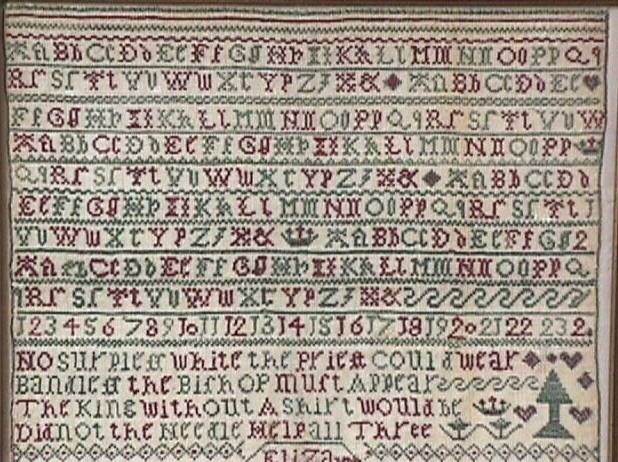 Aa Bb Cc Dd Ee Ff Gg Hh Ii Kk Ll Mm Nn Oo Pp Qq
Rr Sſ Tt Vv Ww Xx Yy Zz & Aa Bb Cc Dd Ee
Ff Gg Hh Ii Kk Ll Mm Nn Oo Pp Qq Rr Sſ Tt Vv W
Aa Bb Cc Dd Ee Ff Gg Hh Ii Kk Ll Mm Nn Oo Pp
Qq Rr Sſ Tt Vv Ww Xx Yy Zz & Aa Bb Cc Dd
Ee Ff Gg Hh Ii Kk Ll Mm Nn Oo Pp Qq Rr Sſ Tt
Vv Ww Xx Yy Zz & Aa Bb Cc Dd Ee Ff Gg 2
Aa Bb Cc Dd Ee Ff Gg Hh Ii Kk Ll Mm Nn Oo Pp Q
q Rr Sſ Tt Vv Ww Xx Yy Zz &
1 2 3 4 5 6 7 8 9 10 11 12 13 14 15 16 17 18 19 20 21 22 23 2
No Surpleſſ white the Prieſt could wear
Bandleſſ the Biſhop muſt Appear
The King without A Shirt would be
Did not the Needle Help all Three